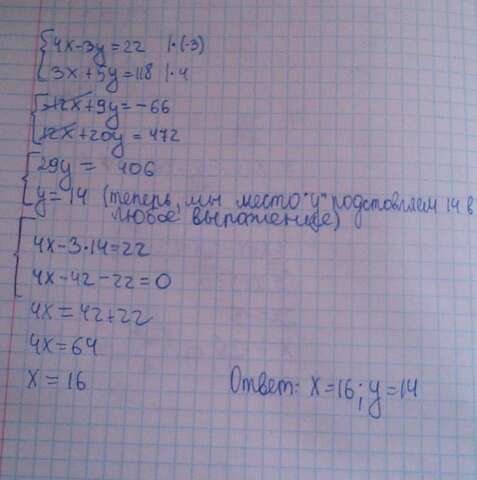 4x-3y=22 |·(-3)
3x+5y=118 |·4
-12x+9y=-66
12x+20y=472
29y= 406
y=14 (теперь, мы место "y" подставляем 14 в
любое выражение)
4x-3·14=22
4x-42-22=0
4x=42+22
4x=64
x=16
Ответ: x=16; y=14